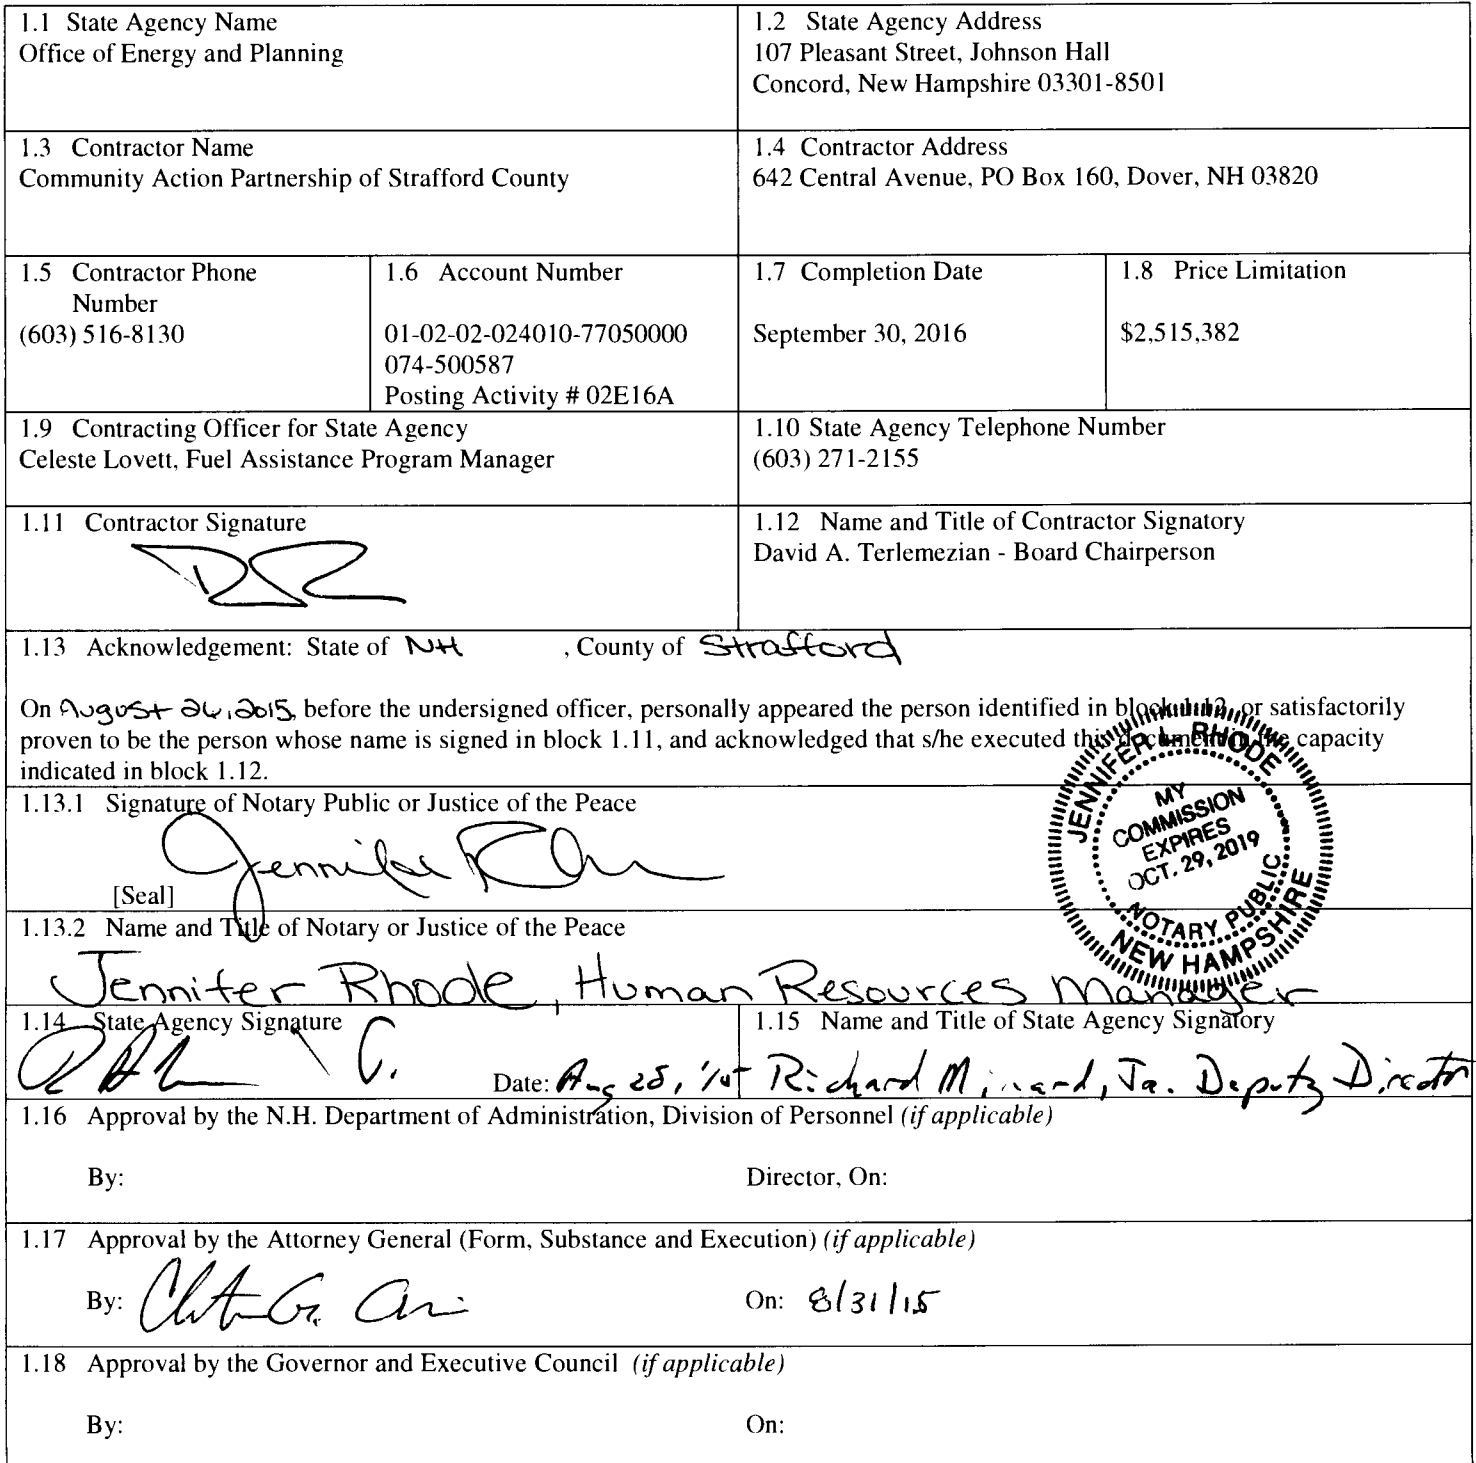 1.1 State Agency Name
Office of Energy and Planning
1.2 State Agency Address
107 Pleasant Street, Johnson Hall
Concord, New Hampshire 03301-8501
1.3 Contractor Name
Community Action Partnership of Strafford County
1.4 Contractor Address
642 Central Avenue, PO Box 160, Dover, NH 03820
1.5 Contractor Phone
Number
(603) 516-8130
1.6 Account Number
01-02-02-024010-77050000
074-500587
Posting Activity # 02E16A
1.7 Completion Date
September 30, 2016
1.8 Price Limitation
$2,515,382
1.9 Contracting Officer for State Agency
Celeste Lovett, Fuel Assistance Program Manager
1.10 State Agency Telephone Number
(603) 271-2155
1.11 Contractor Signature
1.12 Name and Title of Contractor Signatory
David A. Terlemezian - Board Chairperson
1.13 Acknowledgement: State of NH , County of Strafford
On August 26, 2015, before the undersigned officer, personally appeared the person identified in block 1.12, or satisfactorily
proven to be the person whose name is signed in block 1.11, and acknowledged that s/he executed this document in the capacity
indicated in block 1.12.
JENNIFER L. RHODE
MY
COMMISSION
EXPIRES
OCT. 29, 2019
NOTARY PUBLIC
NEW HAMPSHIRE
1.13.1 Signature of Notary Public or Justice of the Peace
Jennifer
[Seal]
1.13.2 Name and Title of Notary or Justice of the Peace
Jennifer Rhode, Human Resources Manager
1.14 State Agency Signature
Date: Aug 28, '15
1.15 Name and Title of State Agency Signatory
Richard Minard, Jr. Deputy Director
1.16 Approval by the N.H. Department of Administration, Division of Personnel (if applicable)
By:
Director, On:
1.17 Approval by the Attorney General (Form, Substance and Execution) (if applicable)
By:
On: 8/31/15
1.18 Approval by the Governor and Executive Council (if applicable)
By:
On: